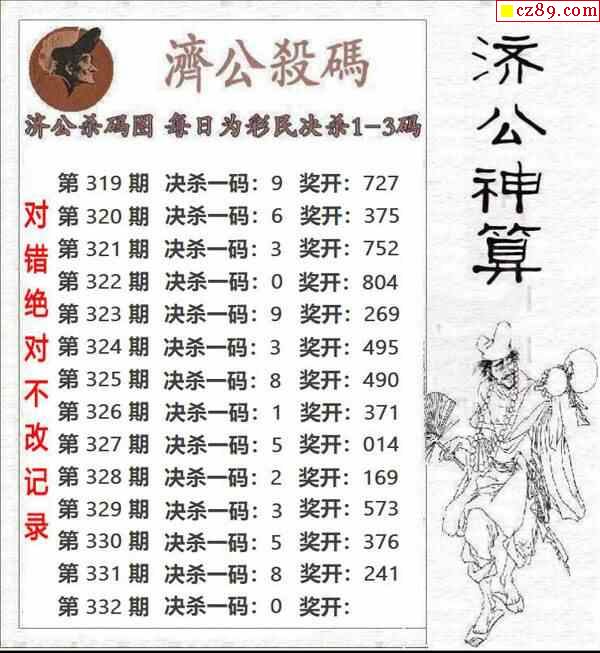 cz89.com
濟公殺碼
济公杀码图 每日为彩民决杀1-3码
第 319 期 决杀一码：9 奖开：727
第 320 期 决杀一码：6 奖开：375
第 321 期 决杀一码：3 奖开：752
第 322 期 决杀一码：0 奖开：804
第 323 期 决杀一码：9 奖开：269
第 324 期 决杀一码：3 奖开：495
第 325 期 决杀一码：8 奖开：490
第 326 期 决杀一码：1 奖开：371
第 327 期 决杀一码：5 奖开：014
第 328 期 决杀一码：2 奖开：169
第 329 期 决杀一码：3 奖开：573
第 330 期 决杀一码：5 奖开：376
第 331 期 决杀一码：8 奖开：241
第 332 期 决杀一码：0 奖开：
对错绝对不改记录
济公神算